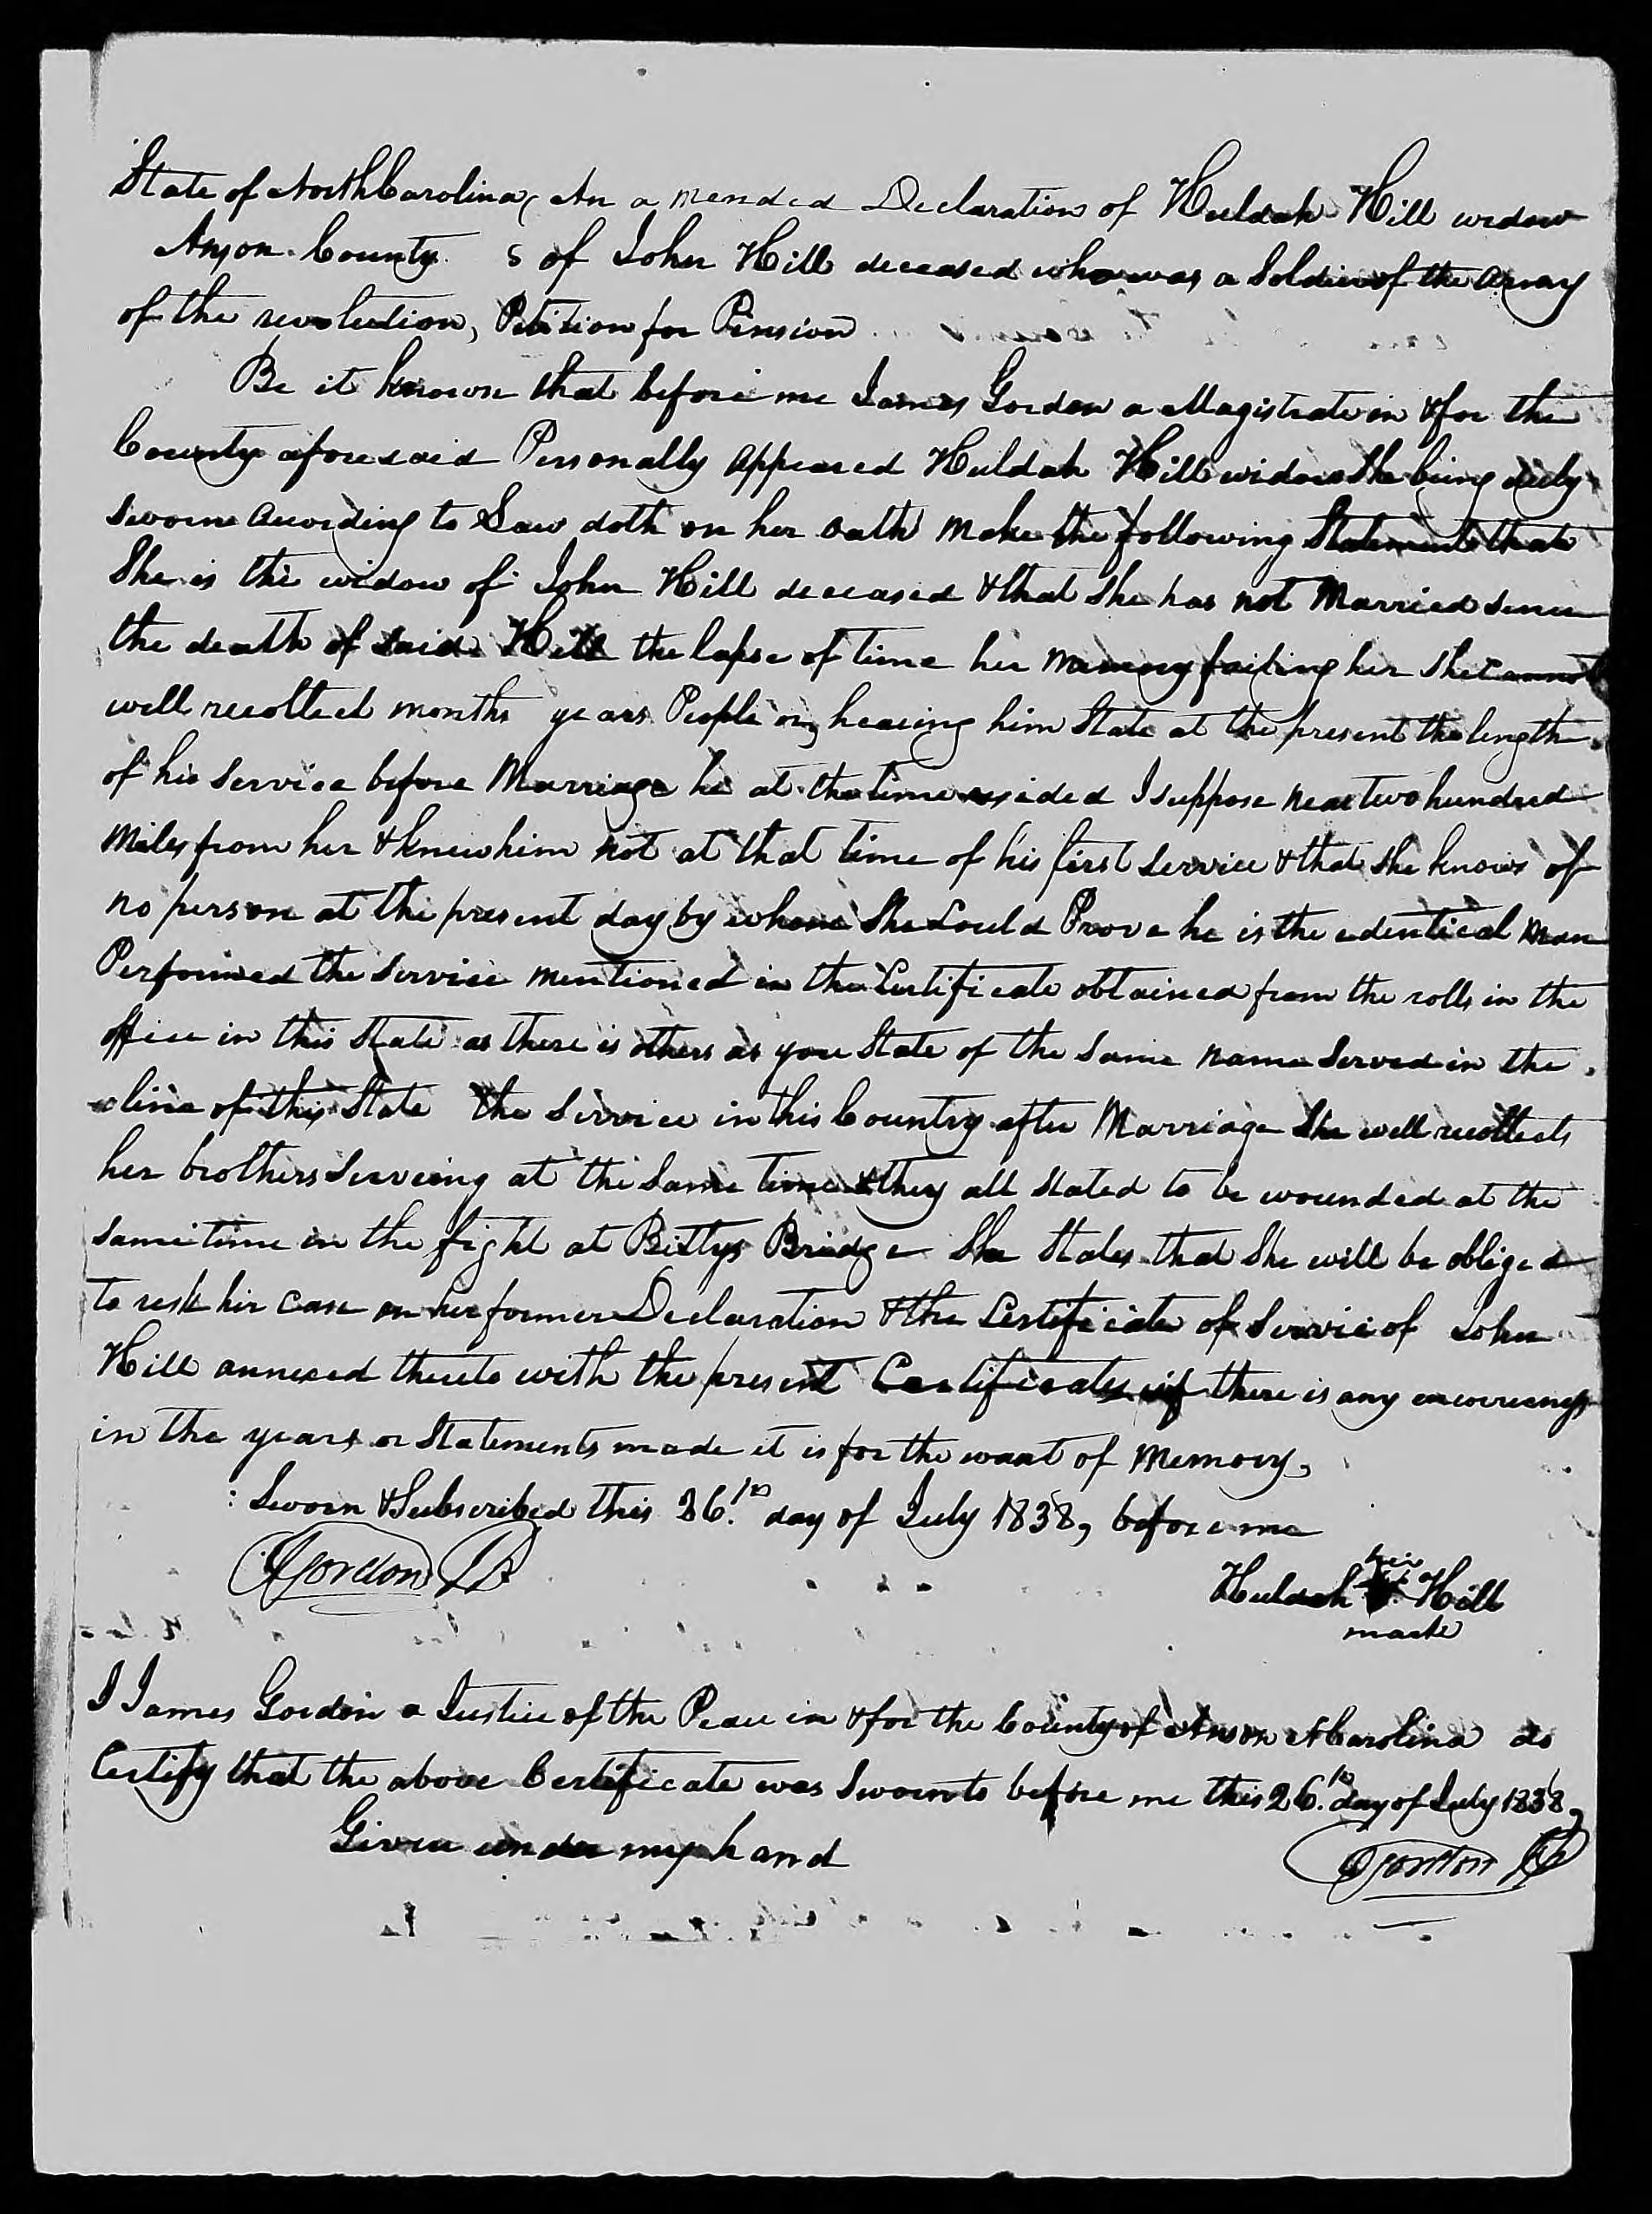 State of North Carolina An amended Declaration of Huldah Hill widow
Anson County of John Hill deceased who was a Soldier of the army
of the revolution, Petition for Pension
Be it known that before me James Gordon a Magistrate in & for the
County aforesaid Personally appeared Huldah Hill widow She being duly
Sworne according to Law doth on her oath make the following Statements that
She is the widow of John Hill deceased & that She has not Married since
the death of said Hill the lapse of time her memory failing her She cannot
well recollect months years People or hearing him State at the present the length
of his Service before Marriage he at the time resided I suppose near two hundred
Miles from her & knew him not at that time of his first Service & that She knows of
no person at the present day by whome She Could Prove he is the edentical man
Performed the Service mentioned in the Certificate obtained from the rolls in the
office in this State as there is others as you State of the Same name Served in the
line of this State the Service in this Country after Marriage She well recollects
her brothers Serveing at the Same time & they all stated to be wounded at the
same time in the fight at Bettys Bridge She States that She will be obliged
to rest her case on her former Declaration & the Certificate of Service of John
Hill annexed thereto with the present Certificates if there is any
in the years or Statements made it is for the want of Memory,
Sworn & Subscribed this 26.th day of July 1838, before me
JGordon JP
her
Huldah Hill
mark
I James Gordon a Justice of the Peace in & for the County of Anson N Carolina do
Certify that the above Certificate was Sworn to before me this 26.th day of July 1838,
Given under my hand
JGordon JP